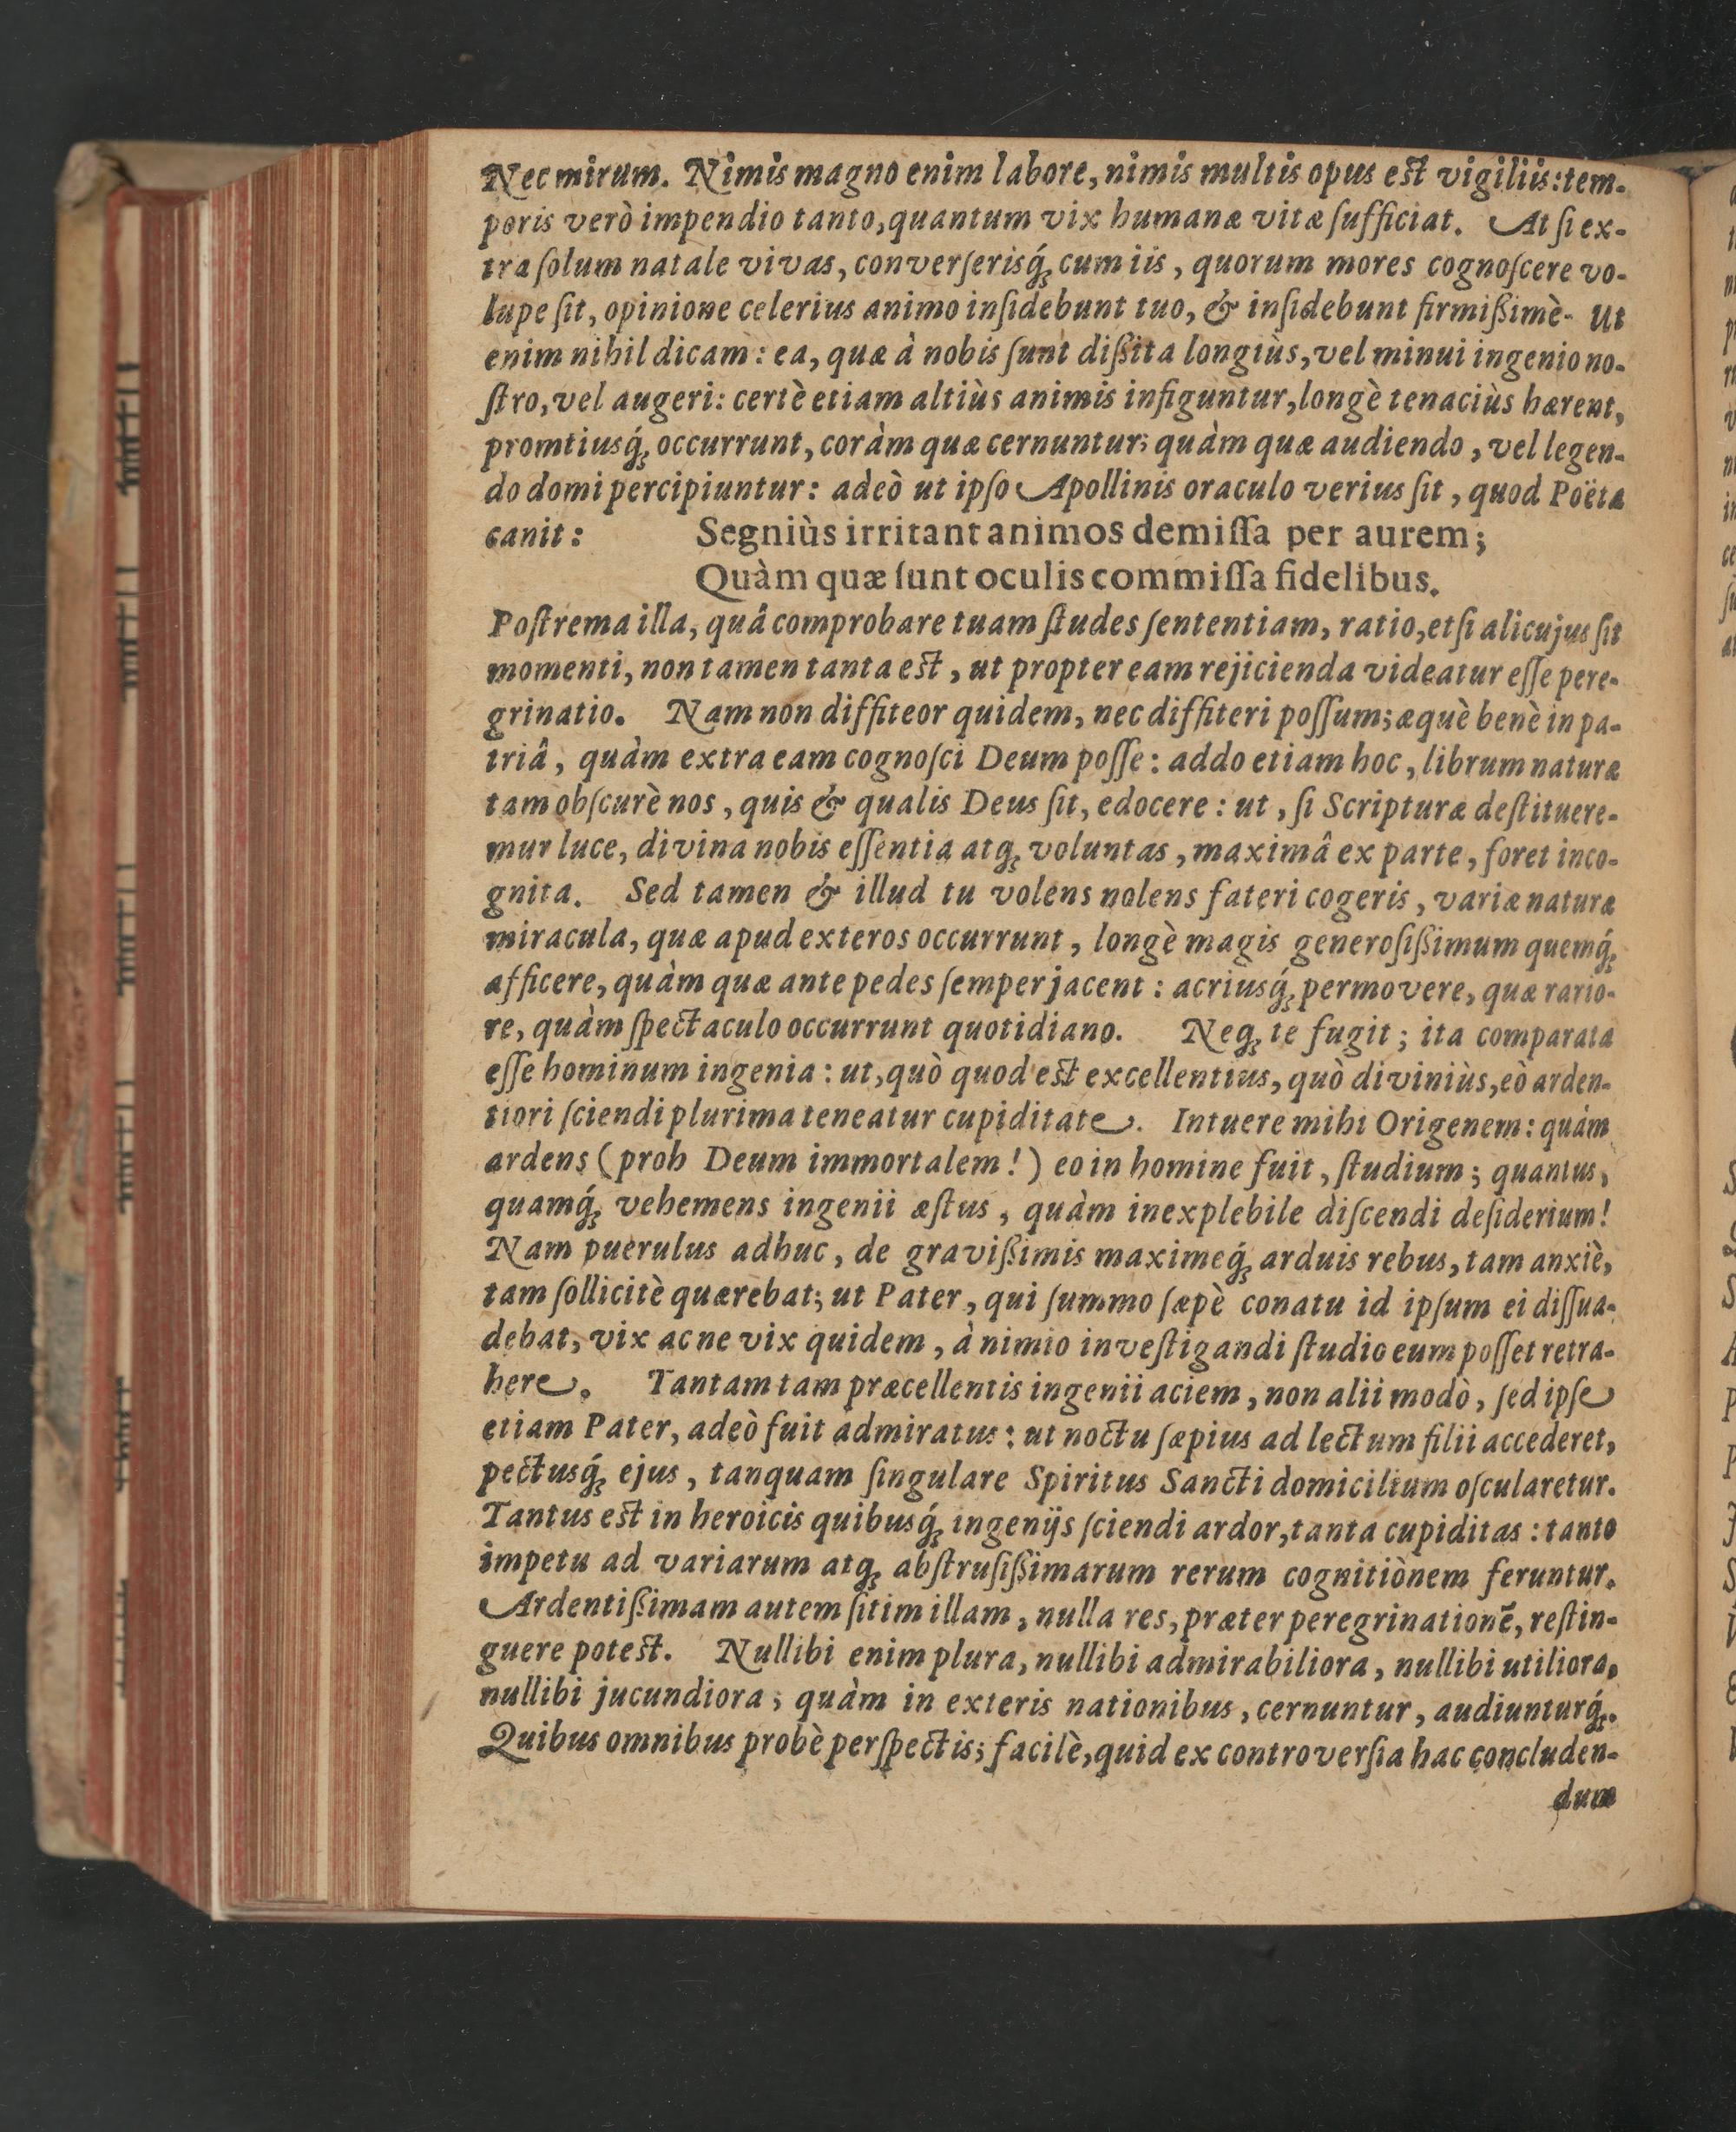 Nec mirum. Nimis magno enim labore, nimis multis opus est vigiliis: tem-
poris verò impendio tanto, quantum vix humanæ vitæ ſufficiat. At ſi ex-
tra ſolum natale vivas, converſerisq́ꝫ cum iis, quorum mores cognoſcere vo-
lupe ſit, opinione celerius animo inſidebunt tuo, & inſidebunt firmißimè. Ut
enim nihil dicam: ea, quæ à nobis ſunt dißita longiùs, vel minui ingenio no-
ſtro, vel augeri: certè etiam altiùs animis infiguntur, longè tenaciùs hærent,
promtiusq́ꝫ occurrunt, coràm quæ cernuntur; quàm quæ audiendo, vel legen-
do domi percipiuntur: adeò ut ipſo Apollinis oraculo verius ſit, quod Poëta
canit: Segniùs irritant animos demiſſa per aurem;
Quàm quæ ſunt oculis commiſſa fidelibus.
Poſtrema illa, quâ comprobare tuam ſtudes ſententiam, ratio, etſi alicujus ſit
momenti, non tamen tanta est, ut propter eam rejicienda videatur eſſe pere-
grinatio. Nam non diffiteor quidem, nec diffiteri poſſum; æquè benè in pa-
triâ, quàm extra eam cognoſci Deum poſſe: addo etiam hoc, librum naturæ
tam obſcurè nos, quis & qualis Deus ſit, edocere: ut, ſi Scripturæ deſtituere-
mur luce, divina nobis eſſentia atqꝫ voluntas, maximâ ex parte, foret inco-
gnita. Sed tamen & illud tu volens nolens fateri cogeris, variæ naturæ
miracula, quæ apud exteros occurrunt, longè magis generoſißimum quemq́ꝫ
afficere, quàm quæ ante pedes ſemper jacent: acriusq́ꝫ permovere, quæ rario-
re, quàm ſpectaculo occurrunt quotidiano. Neqꝫ te fugit; ita comparata
eſſe hominum ingenia: ut, quò quod est excellentius, quò diviniùs, eò arden-
tiori ſciendi plurima teneatur cupiditate. Intuere mihi Origenem: quàm
ardens (proh Deum immortalem!) eo in homine fuit, ſtudium; quantus,
quamq́ꝫ vehemens ingenii æſtus, quàm inexplebile diſcendi deſiderium!
Nam puerulus adhuc, de gravißimis maximeq́ꝫ arduis rebus, tam anxiè,
tam ſollicitè quærebat; ut Pater, qui ſummo ſæpè conatu id ipſum ei diſſua-
debat, vix ac ne vix quidem, à nimio inveſtigandi ſtudio eum poſſet retra-
here. Tantam tam præcellentis ingenii aciem, non alii modò, ſed ipſe
etiam Pater, adeò fuit admiratus: ut noctu ſæpius ad lectum filii accederet,
pectusq́ꝫ ejus, tanquam ſingulare Spiritus Sancti domicilium oſcularetur.
Tantus est in heroicis quibusq́ꝫ ingenijs ſciendi ardor, tanta cupiditas: tanto
impetu ad variarum atqꝫ abſtruſißimarum rerum cognitiònem feruntur.
Ardentißimam autem ſitim illam, nulla res, præter peregrinationẽ, reſtin-
guere potest. Nullibi enim plura, nullibi admirabiliora, nullibi utiliora,
nullibi jucundiora; quàm in exteris nationibus, cernuntur, audiunturq́ꝫ.
Quibus omnibus probè perſpectis; facilè, quid ex controverſia hac concluden-
dum